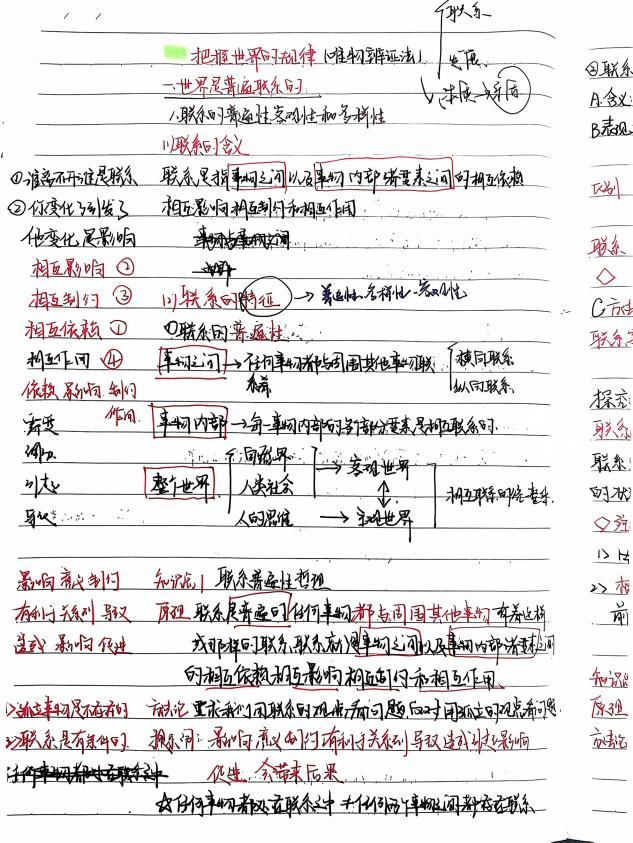 联系
发展
把握世界的规律(唯物辩证法)
一.世界是普遍联系的
1.联系的普遍性客观性和多样性
(1)联系的含义
①谁离不开谁是联系 联系是指事物之间以及事物内部诸要素之间的相互依赖
②你变化了引发了 相互影响相互制约和相互作用
他变化是影响
相互影响②
相互制约③ (1)联系的特征 → 普遍性 多样性 客观性
相互依赖① ①联系的普遍性
相互作用④ 事物之间 → 任何事物都与周围其他事物联系着 横向联系
纵向联系
依赖 影响 制约
作用
事物内部 → 每一事物内部的各部分要素是相互联系的
引起 整个世界 自然界 → 客观世界
人类社会 相互联系的统一整体
导致 人的思维 → 主观世界
影响 意义 制约 知识点1 联系普遍性哲理
有利于 关系到 导致 原理 联系是普遍的 任何事物都与周围其他事物有着这样
造成 影响 促进 或那样的联系,联系就是事物之间以及事物内部诸要素之间
的相互依赖相互影响相互制约和相互作用
1>孤立事物是不存在的 方法论 要求我们用联系的观点看问题 反对用孤立的观点看问题
2>联系是有条件的 提示词:影响 意义 制约 有利于 关系到 导致 造成 引起 影响
促进 会带来 后果
☆任何事物都处在联系之中 ≠ 任何两个事物之间都存在联系
②联系
A.含义:
B.表现
区别
联系
◇
C方法
联系
探究:
联系
联系
的
◇
1>
2>
前
知识点
原理
方法论